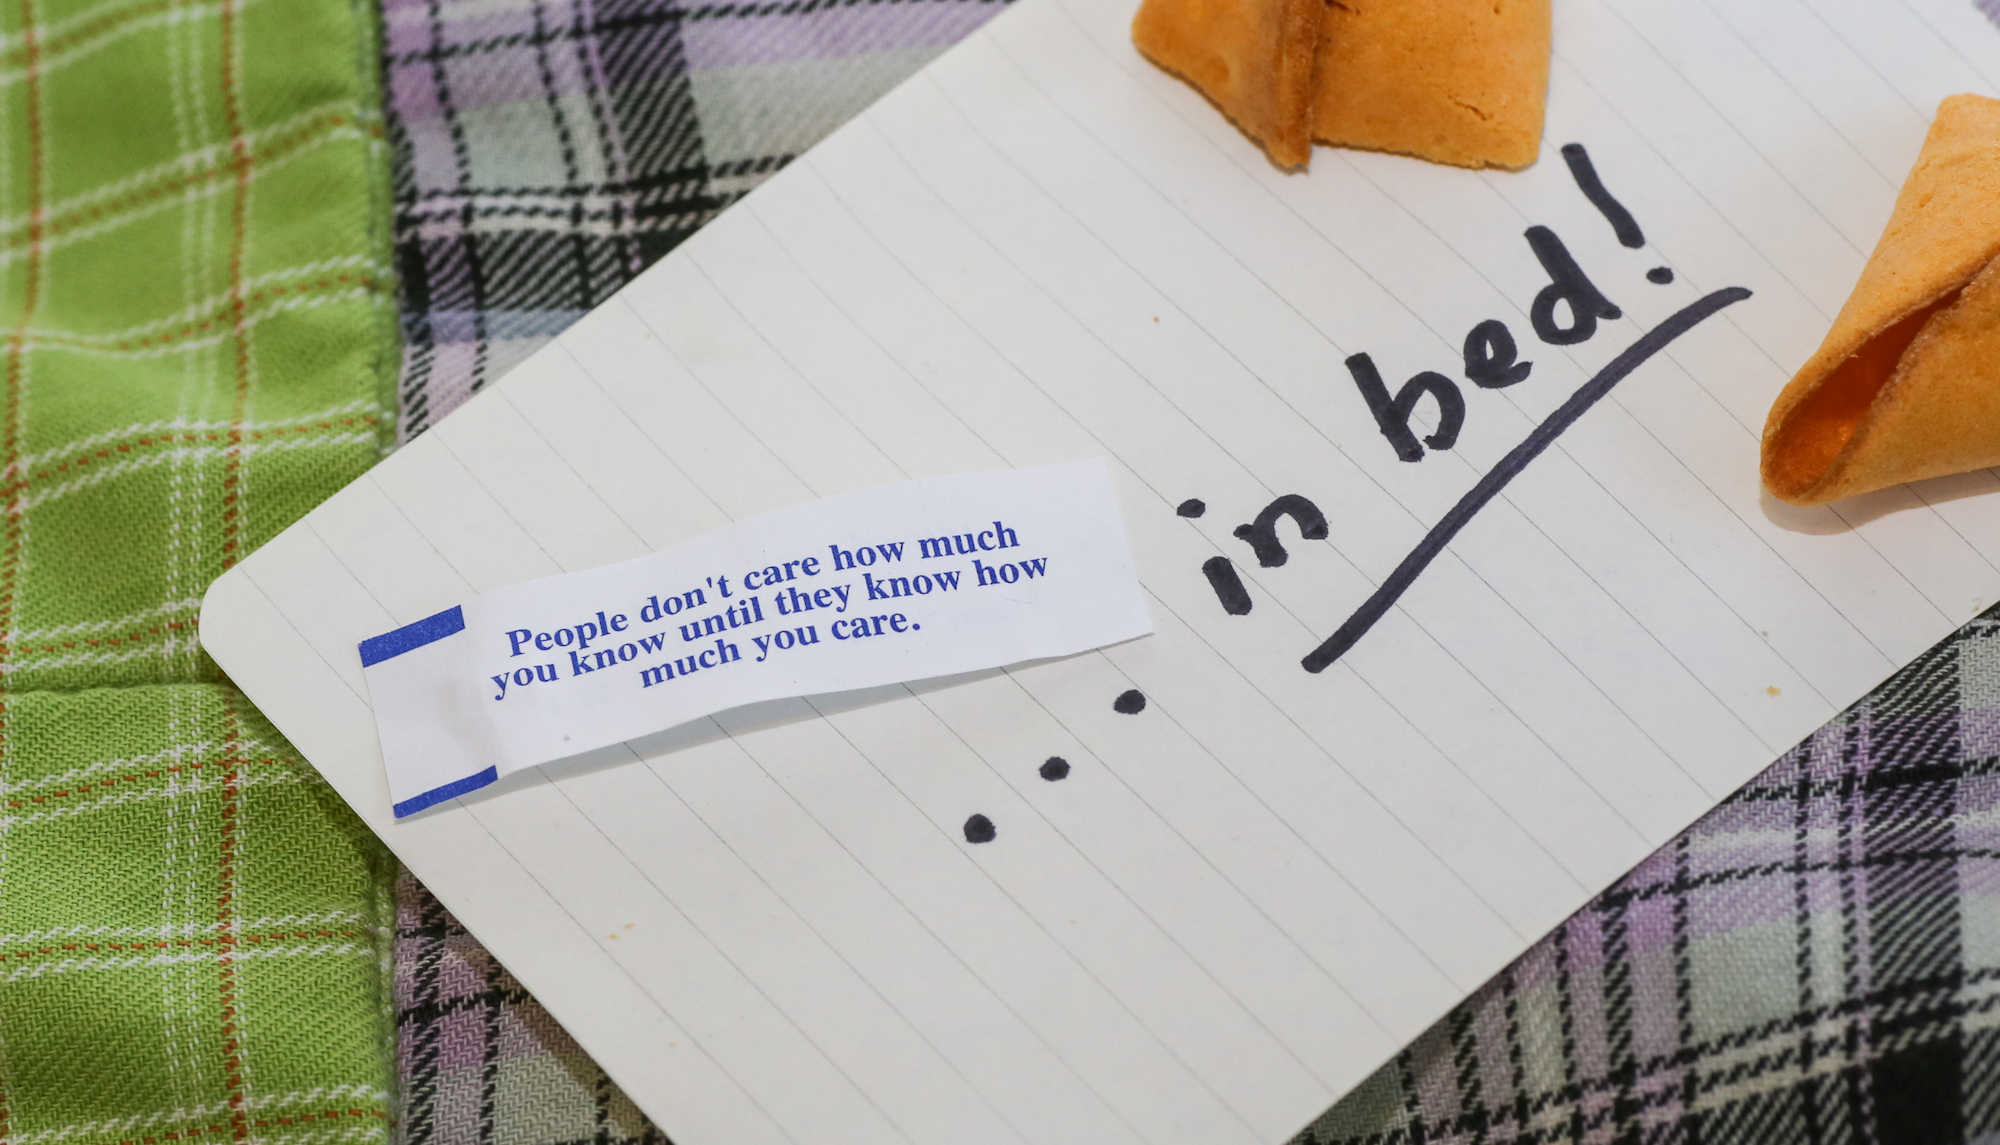 People don't care how much
you know until they know how
much you care.
... in bed!